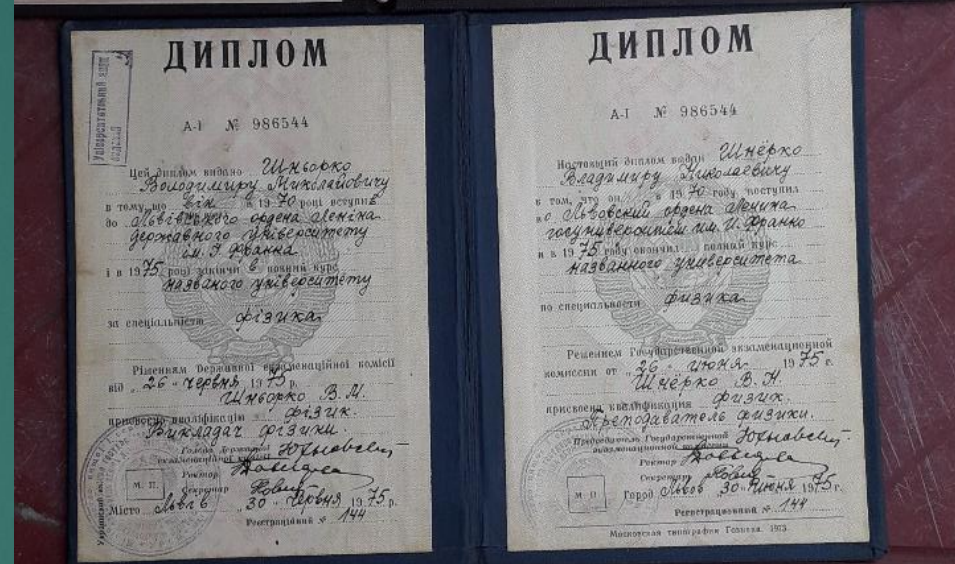 ДИПЛОМ
А-І № 986544
Цей диплом видано Шньорко
Володимиру Миколайовичу
в тому, що він в 1970 році вступив
до Львівського ордена Леніна
державного університету
ім. І. Франка
і в 1975 році закінчив повний курс
названого університету
за спеціальністю фізика
Рішенням Державної екзаменаційної комісії
від „26" червня 1975 р.
Шньорко В. М.
присвоєно кваліфікацію фізик.
Викладач фізики.
Голова Державної
екзаменаційної комісії
Ректор
Секретар
М. П.
Місто Львів „30" червня 1975 р.
Реєстраційний № 144
ДИПЛОМ
А-I № 986544
Настоящий диплом выдан Шнёрко
Владимиру Николаевичу
в том, что он в 1970 году поступил
в о Львовский ордена Ленина
госуниверситет им. И. Франко
и в 1975 году окончил полный курс
названного университета
по специальности физика
Решением Государственной экзаменационной
комиссии от „26" июня 1975 г.
Шнёрко В. Н.
присвоена квалификация физик.
Преподаватель физики.
Председатель Государственной
экзаменационной комиссии
Ректор
Секретарь
М. П.
Город Львов 30 июня 1975 г.
Регистрационный № 144
Московская типография Гознака. 1973.